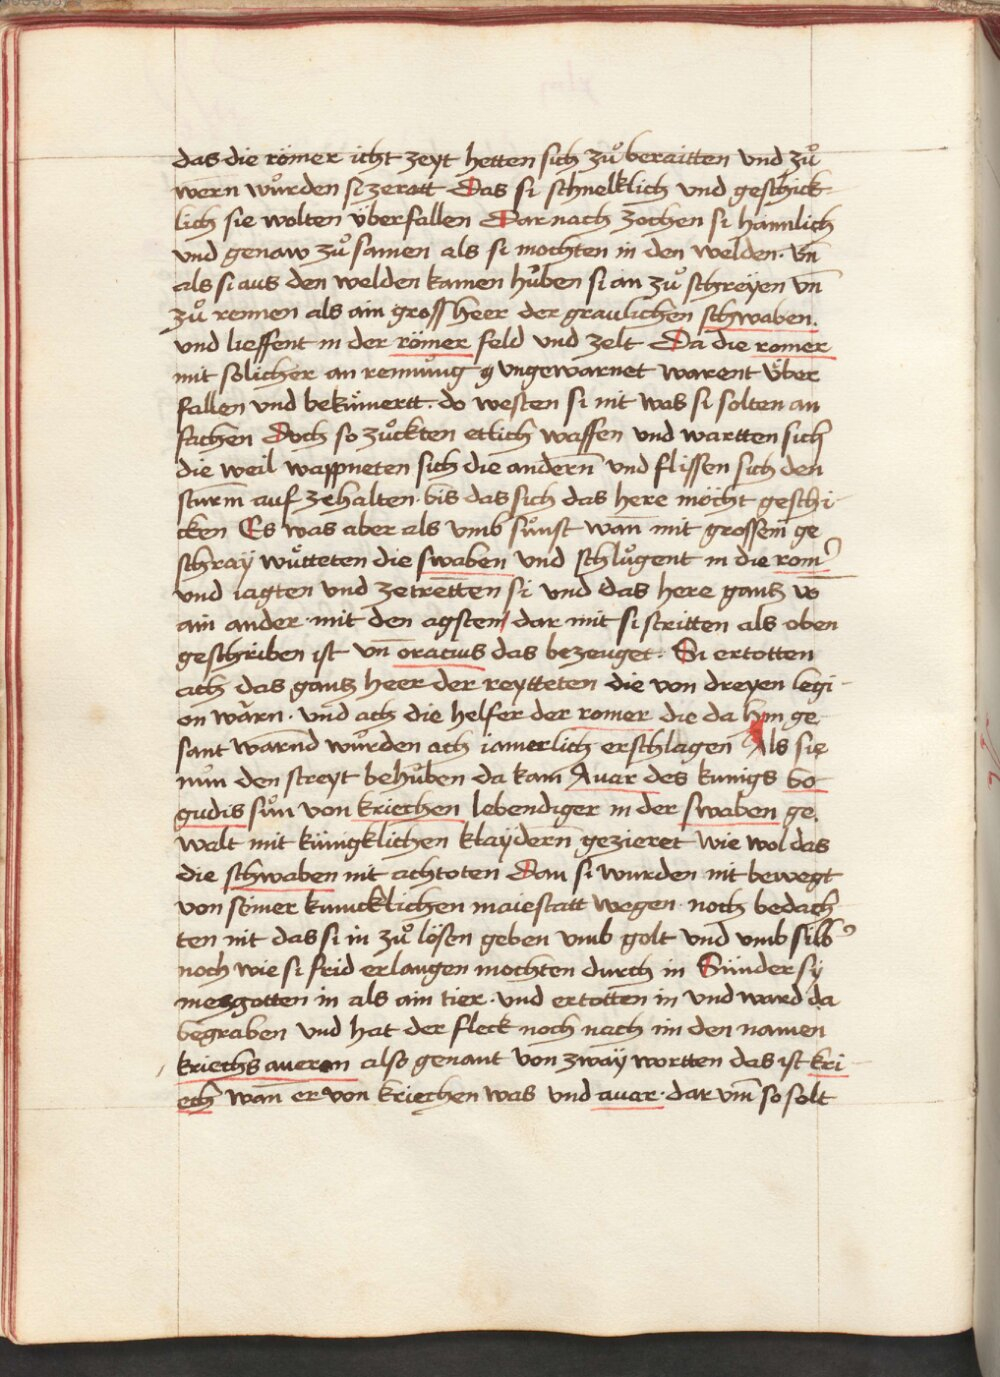 das die römer icht zeyt hetten sich zuͦ beraitten und zuͦ
wern wuͦrden si zeratt Das si schnelklich und geschick
lich sie wolten überfallen Dar nach zochen si hämlich
und genaw zuͦ samen als si mochten in den welden · vn̄
als si aus den welden kamen huͦben si an zuͦ schreÿen vn̄
zuͦ rennen als ain gross heer der graulichen schwaben.
und lieffent in der römer feld und zelt Da die romer
mit solicher an rennung ungewarnet warent über
fallen und bekümertt · do westen si nit was si solten an
fachen Doch so zuͦckten etlich waffen und wartten sich
die weil wappneten sich die andern̄ und flissen sich den
sturm̄ auf zehalten · bis das sich das here möcht geschi-
cken Es was aber als umb suͦnst wan̄ mit grossem ge
schraÿ wuͦtteten die swaben und schluͦgent in die rom̉
und iagten und zetretten si und das here gantz vo
ain ander · mit den agsten dar mit si stritten als oben
geschriben ist vn̄ oracius das bezeuget · Si ertotten
ach das gantz heer der reytteten die von dreyen legi-
on wärn · und ach die helfer der romer die da hin ge
sant warnd wuͦrden ach iamerlich erschlagen Als sie
nuͦn den streyt behuͦben da kam Auar des kunigs bo
gudis suͦn von kriechen lebendiger in der swaben ge.
walt mit künigklichen klaÿdern̄ gezieret wie wol das
die schwaben nit achtoten Dan si wurden nit bewegt
von seiner kunicklichen maiestatt wegen · noch bedach
ten nit das si in zuͦ lösen geben umb golt und umb silb̉
noch wie si frid erlangen mochten durch in Sünder sÿ
mezgotten in als ain tier · und ertotten in und ward da
begraben und hat der fleck noch nach im den namen
kriechs aueron also genant von zwaÿ wortten das ist kri-
ech wan̄ er von kriechen was und auar · dar um̄ so solt